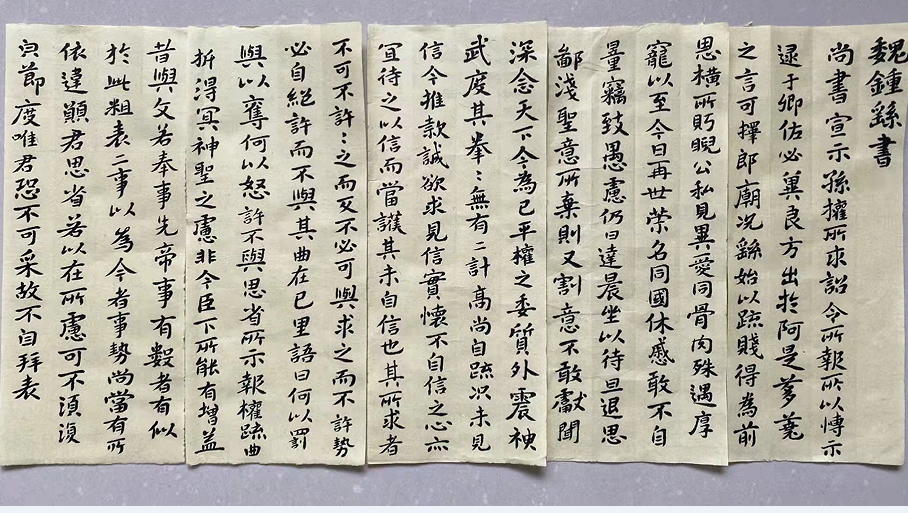 魏鍾繇書
尚書宣示孫權所求詔令所報所以博示
逮于卿佐必冀良方出於阿是芻蕘
之言可擇郎廟況繇始以疏賤得為前
恩橫所眄睨公私見異愛同骨肉殊遇厚
寵以至今日再世榮名同國休慼敢不自
量竊致愚慮仍日達晨坐以待旦退思
鄙淺聖意所棄則又割意不敢獻聞
深念天下今為已平權之委質外震神
武度其拳〻無有二計高尚自疏況未見
信今推款誠欲求見信實懷不自信之心亦
宜待之以信而當護其未自信也其所求者
不可不許〻之而反不必可與求之而不許勢
必自絕許而不與其曲在已里語曰何以罰
與以奪何以怒許不與思省所示報權疏曲
折得冥神聖之慮非今臣下所能有增益
昔與文若奉事先帝事有數者有似
於此粗表二事以為今者事勢尚當有所
依違願君思省若以在所慮可不須復
㒵節度唯君恐不可采故不自拜表